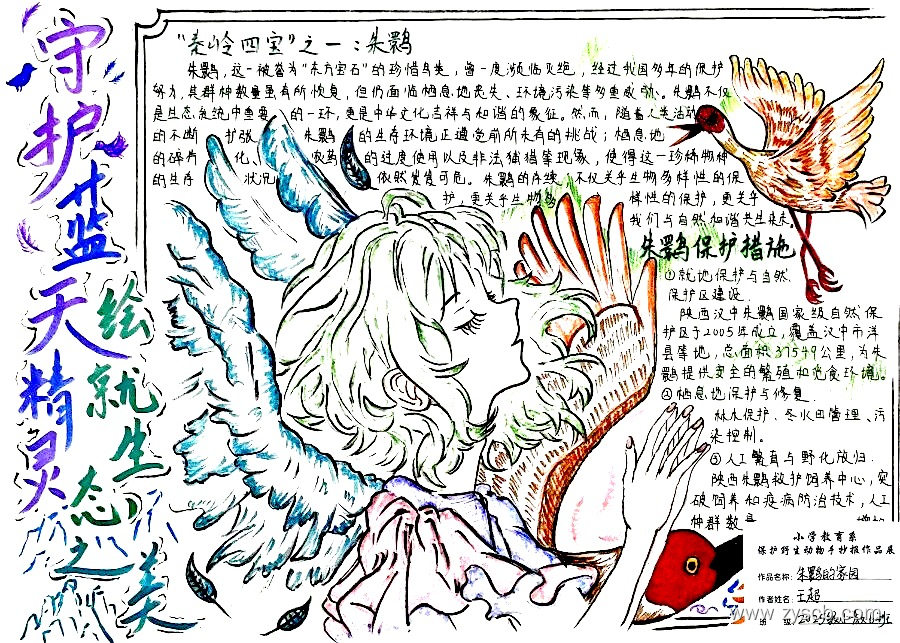 守护蓝天精灵
绘就生态之美
"秦岭四宝"之一：朱鹮
朱鹮，这一被誉为"东方宝石"的珍惜鸟类，曾一度濒临灭绝，经过我国多年的保护
努力，其群种数量虽有所恢复，但仍面临栖息地丧失、环境污染等多重威胁。朱鹮不仅
是生态系统中重要 的一环，更是中华文化吉祥与和谐的象征。然而，随着人类活动
的不断 扩张 朱鹮 的生存环境正遭受前所未有的挑战；栖息地
的碎片 化、 农药 的过度使用以及非法捕猎等现象，使得这一珍稀物种
的生存 状况 依然岌岌可危。朱鹮的存续，不仅关乎生物多样性的保
护，更关乎生物多 样性的保护，更关乎
我们与自然和谐共生未来
朱鹮保护措施
①就地保护与自然
保护区建设
陕西汉中朱鹮国家级自然保
护区于2005年成立，覆盖汉中市洋
县等地，总面积37549公里，为朱
鹮提供安全的繁殖和觅食环境。
②栖息地保护与修复
林木保护、冬水田管理、污
染控制。
③人工繁育与野化放归
陕西朱鹮救护饲养中心，突
破饲养和疫病防治技术，人工
种群数量
小学教育系
保护野生动物手抄报作品展
作品名称：朱鹮的家园
作者姓名：王超
班 级：
www.zyscb.com